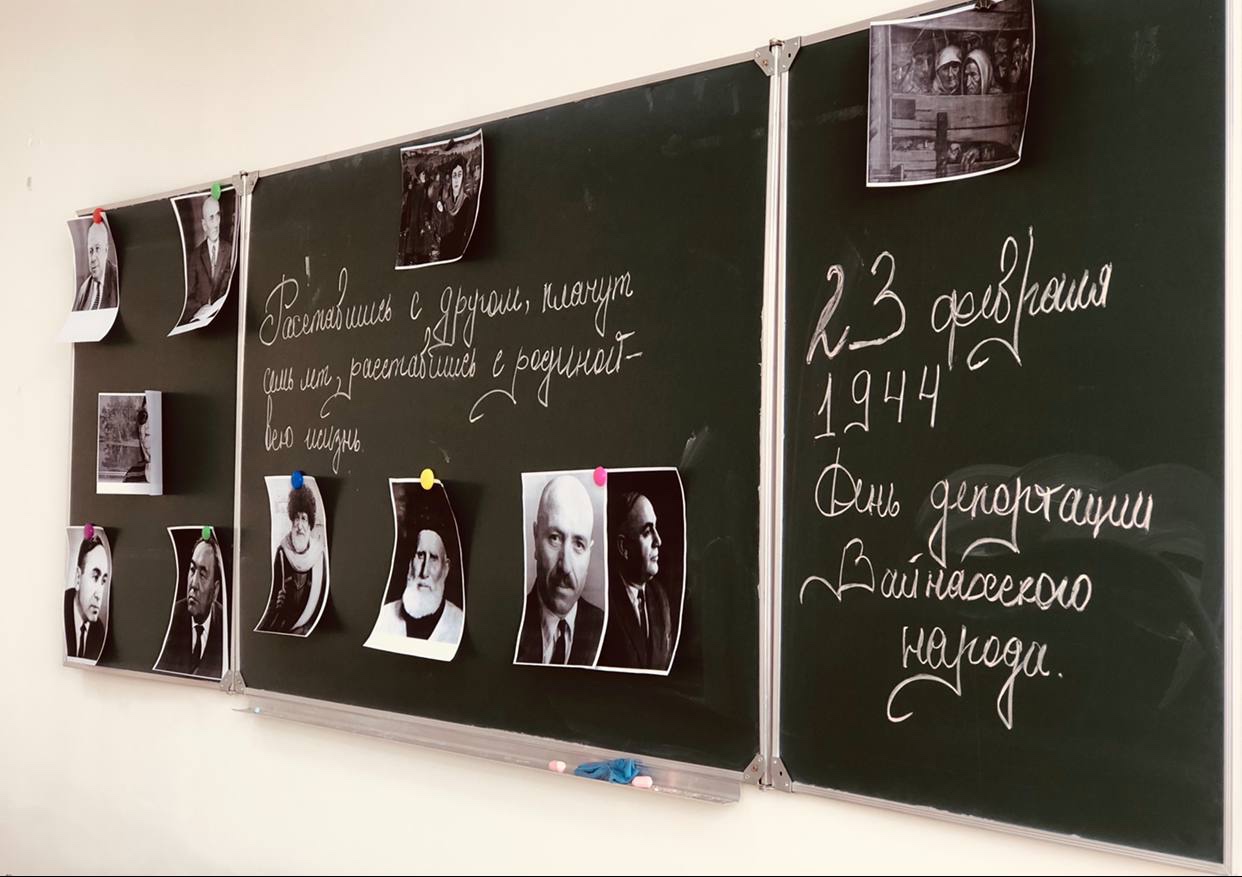 Расставшись с другом, плачут
семь лет, расставшись с родиной-
всю жизнь.
23 февраля
1944
День депортации
Вайнахского
народа.